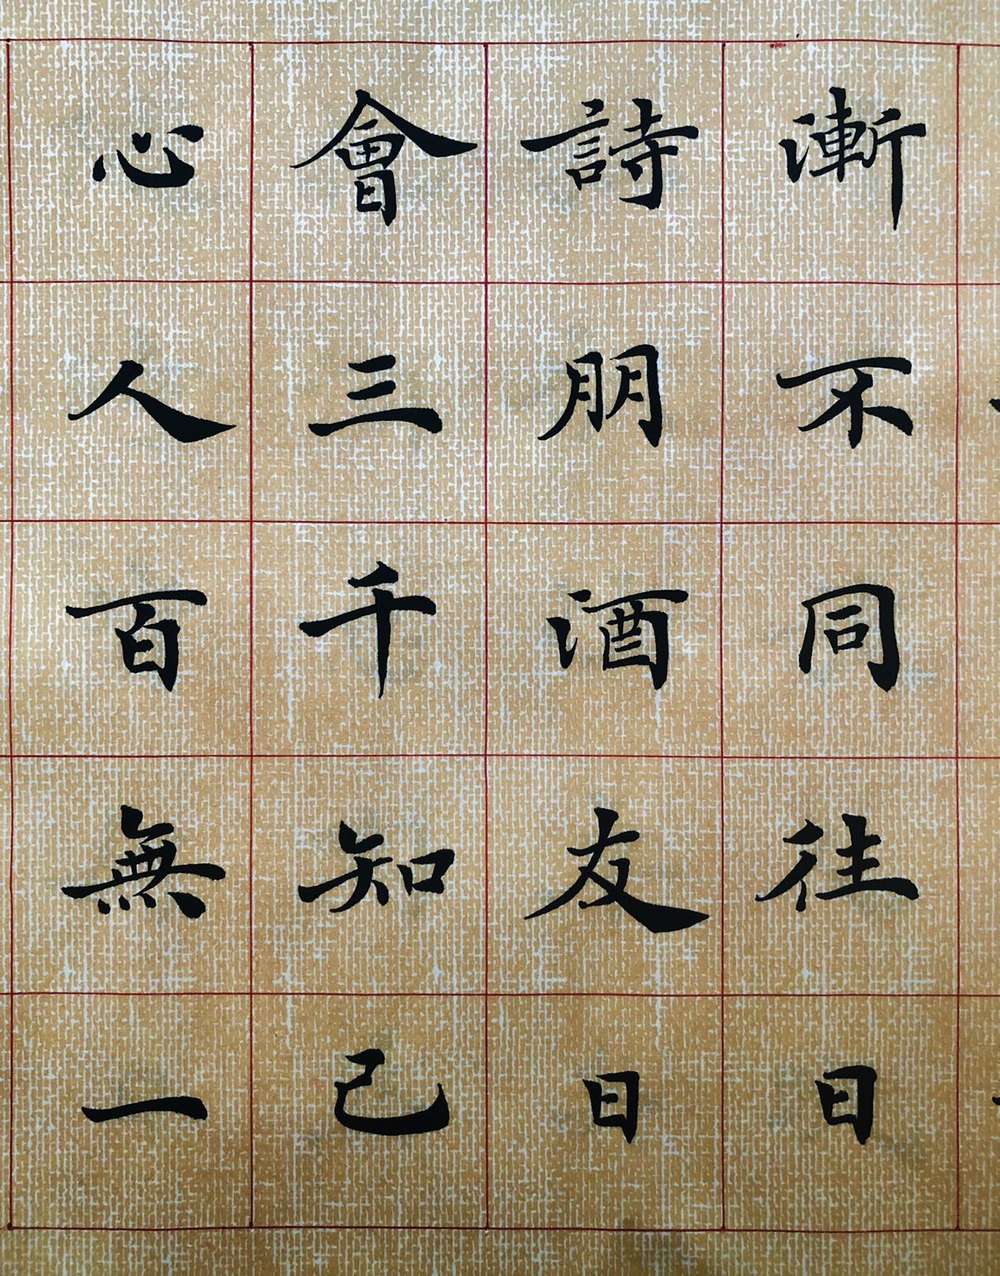 漸不同往日
詩朋酒友日
會三千知己
心人百無一